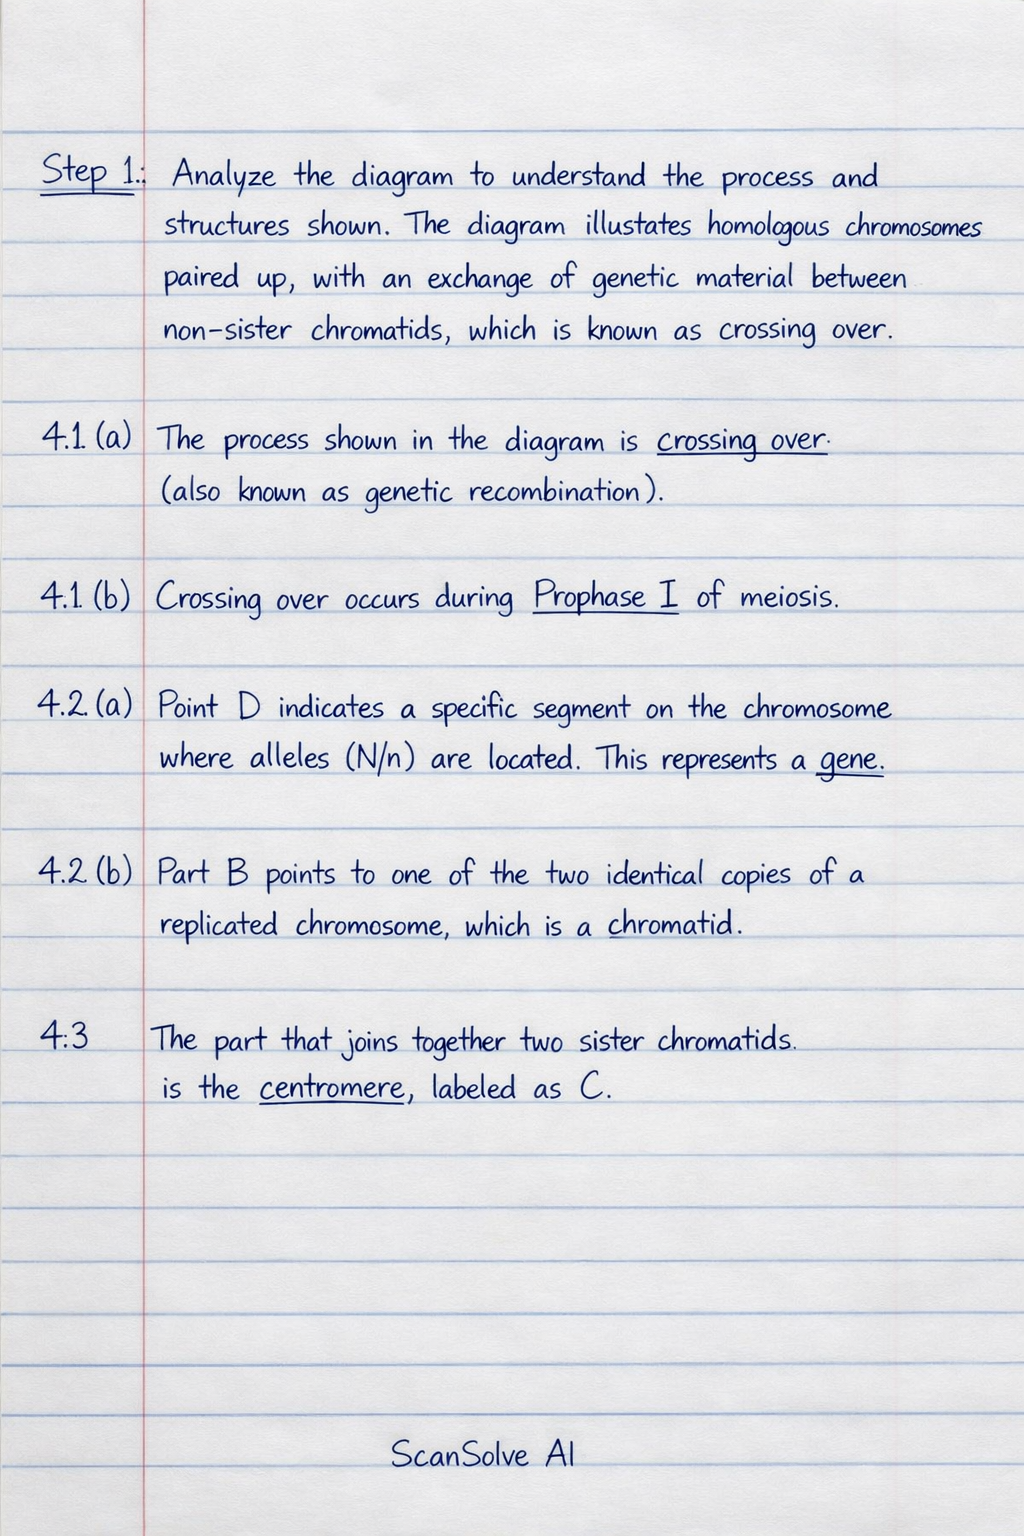 Step 1.: Analyze the diagram to understand the process and
structures shown. The diagram illustates homologous chromosomes
paired up, with an exchange of genetic material between
non-sister chromatids, which is known as crossing over.
4.1 (a) The process shown in the diagram is crossing over.
(also known as genetic recombination).
4.1 (b) Crossing over occurs during Prophase I of meiosis.
4.2 (a) Point D indicates a specific segment on the chromosome
where alleles (N/n) are located. This represents a gene.
4.2 (b) Part B points to one of the two identical copies of a
replicated chromosome, which is a chromatid.
4.3 The part that joins together two sister chromatids.
is the centromere, labeled as C.
ScanSolve AI